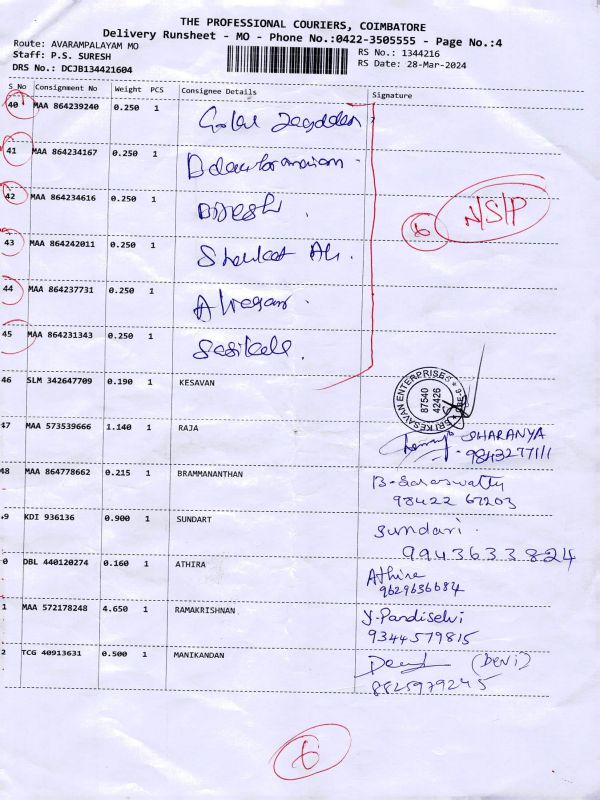 THE PROFESSIONAL COURIERS, COIMBATORE
Delivery Runsheet - MO - Phone No.:0422-3505555 - Page No.:4
Route: AVARAMPALAYAM MO
RS No.: 1344216
Staff: P.S. SURESH
RS Date: 28-Mar-2024
DRS No.: DCJB134421604
S_No Consignment No Weight PCS Consignee Details Signature
40 MAA 864239240 0.250 1
41 MAA 864234167 0.250 1
42 MAA 864234616 0.250 1
6 N/S/P
43 MAA 864242011 0.250 1 Shoukat Ali
44 MAA 864237731 0.250 1
45 MAA 864231343 0.250 1 Sasikala.
46 SLM 342647709 0.190 1 KESAVAN
KESAVAN ENTERPRISES
87540
42426
47 MAA 573539666 1.140 1 RAJA SHARANYA
48 MAA 864778662 0.215 1 BRAMMANANTHAN B-Saraswathy
98422 67203
9 KDI 936136 0.900 1 SUNDART Sundari.
9943633824
0 DBL 440120274 0.160 1 ATHIRA Athira
9629636684
1 MAA 572178248 4.650 1 RAMAKRISHNAN Y.Pandiselvi
9344579815
2 TCG 40913631 0.500 1 MANIKANDAN (DEVI)
8825979245
6